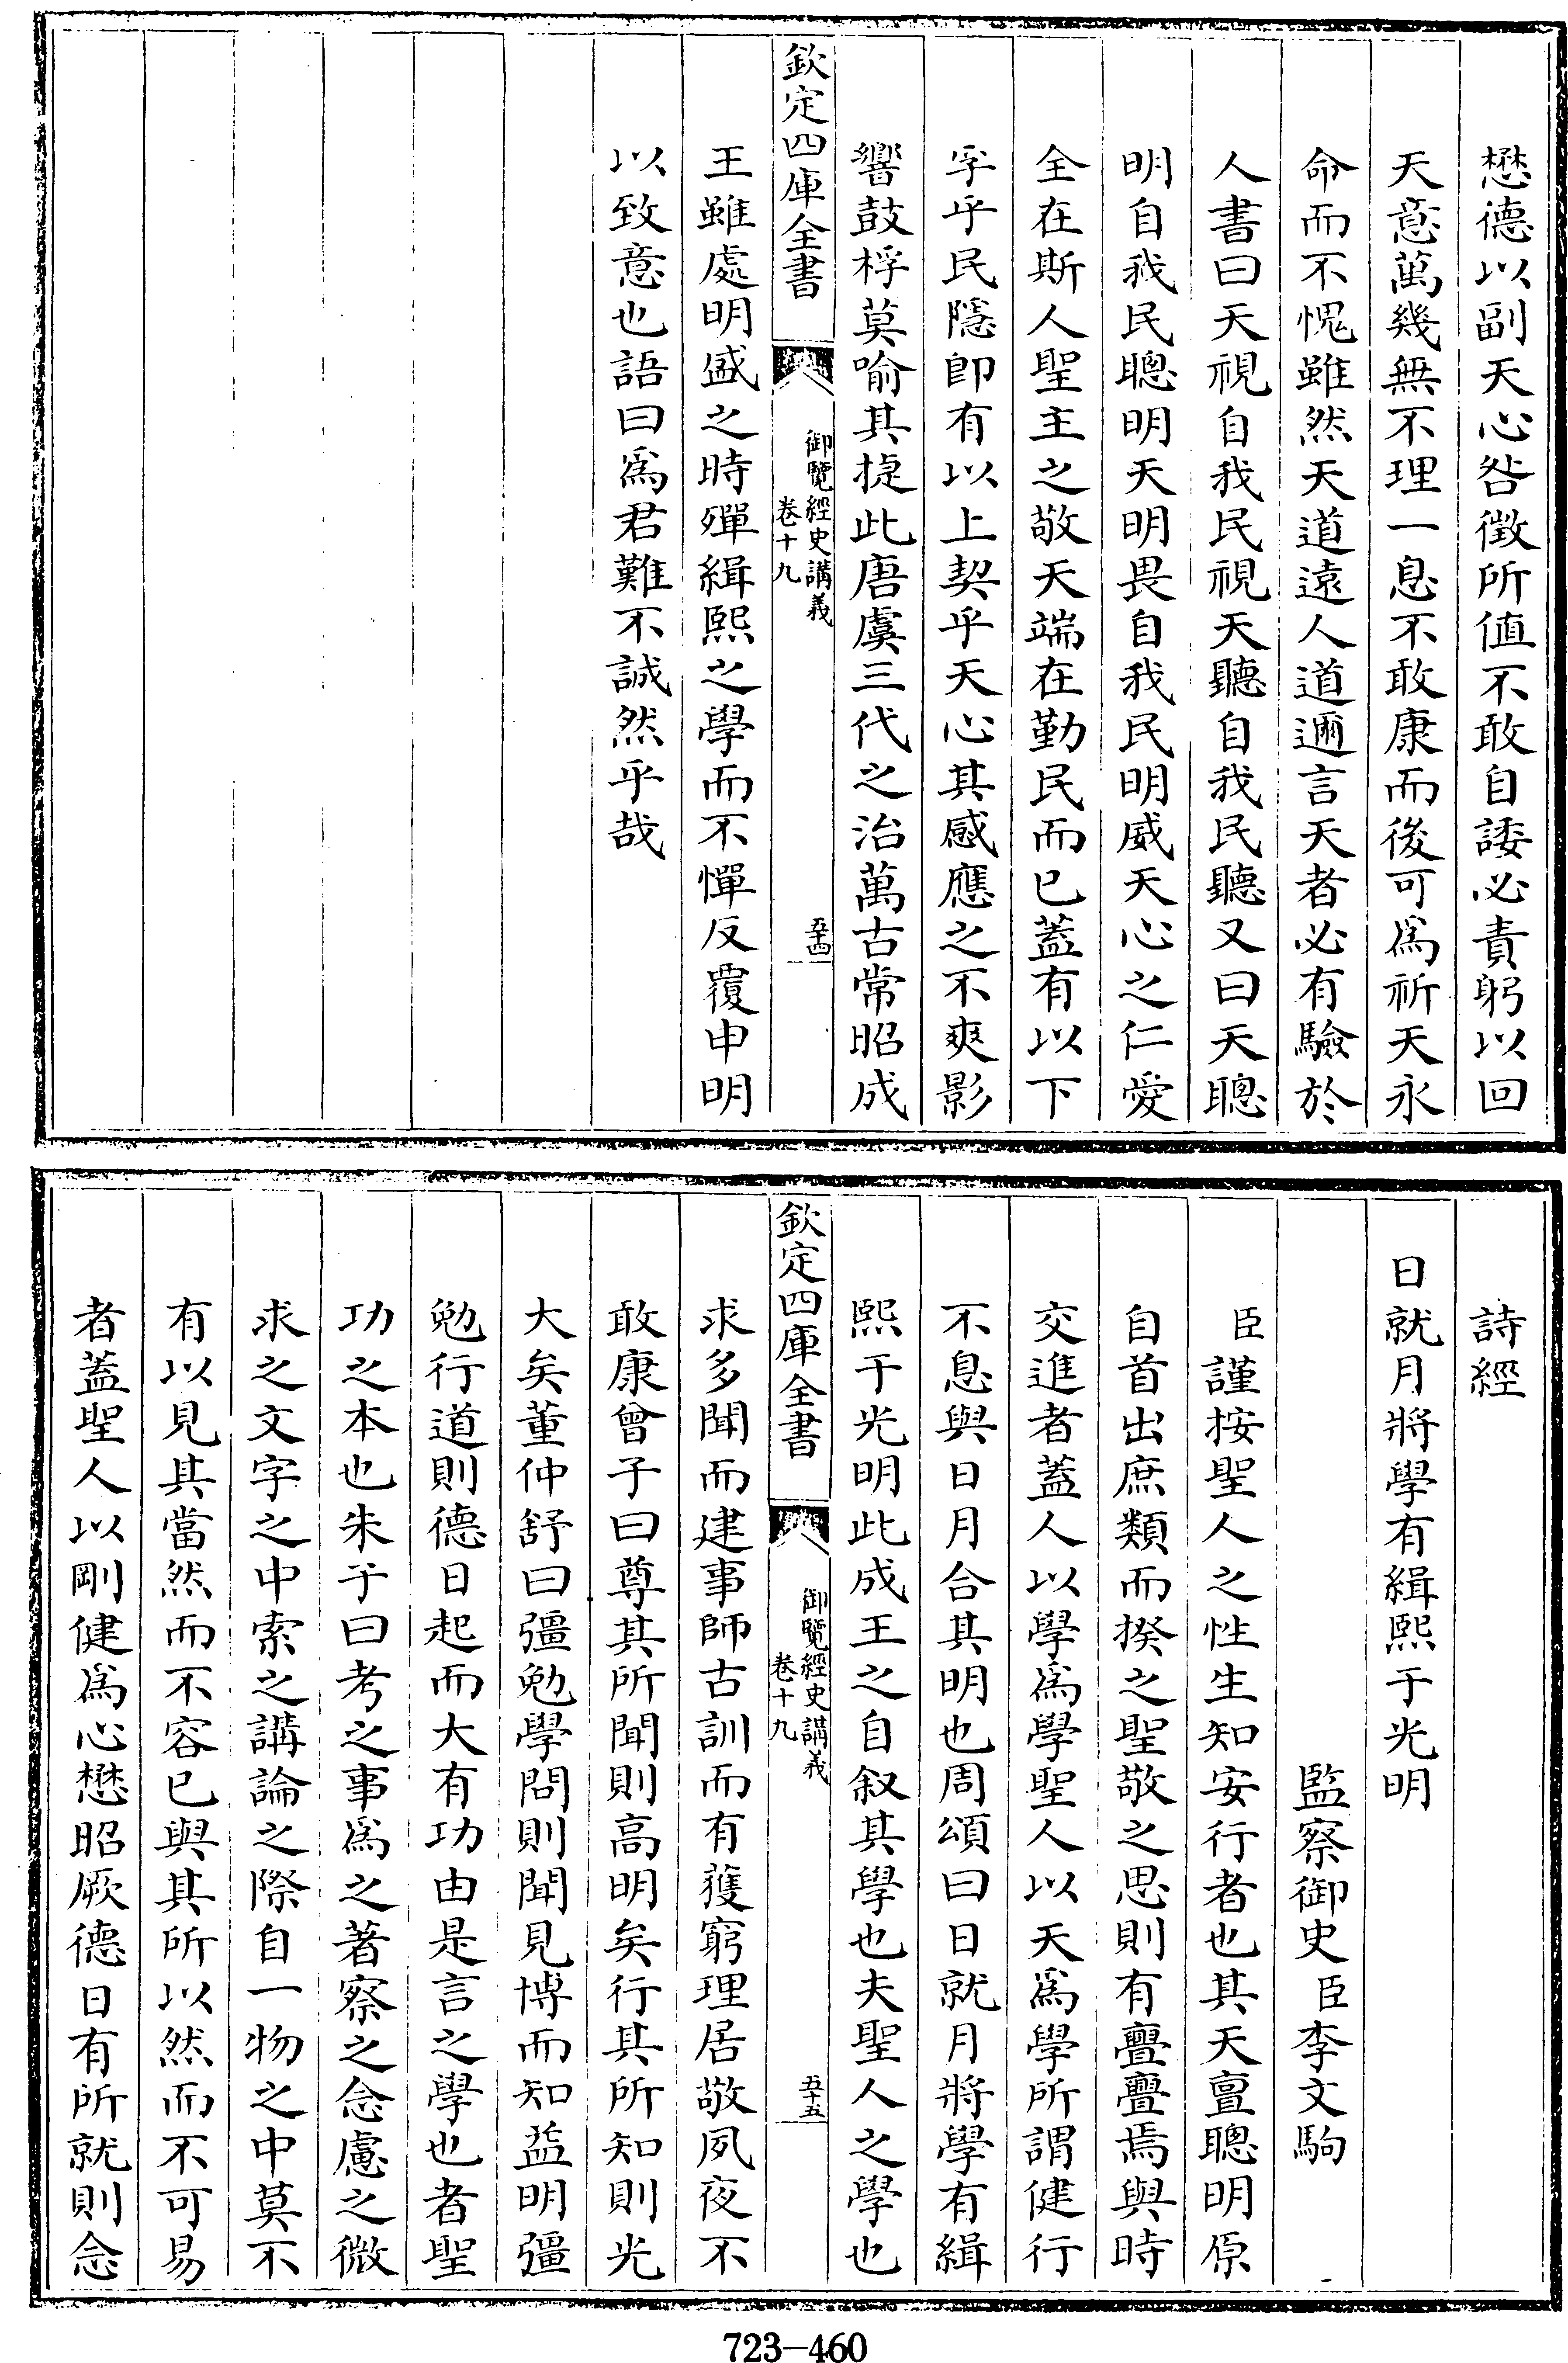 懋德以副天心咎徵所値不敢自諉必責躬以回
天意萬幾無不理一息不敢康而後可爲祈天永
命而不愧雖然天道遠人道邇言天者必有驗於
人書曰天視自我民視天聽自我民聽又曰天聰
明自我民聰明天明畏自我民明威天心之仁愛
全在斯人聖主之敬天端在勤民而已蓋有以下
孚乎民隱卽有以上契乎天心其感應之不爽影
響鼓桴莫喻其捷此唐虞三代之治萬古常昭成
欽定四庫全書
御覽經史講義
卷十九
五十四
王雖處明盛之時殫緝熙之學而不憚反覆申明
以致意也語曰爲君難不誠然乎哉
詩經
日就月將學有緝熙于光明
監察御史臣李文駒
臣謹按聖人之性生知安行者也其天亶聰明原
自首出庶類而揆之聖敬之思則有亹亹焉與時
交進者蓋人以學爲學聖人以天爲學所謂健行
不息與日月合其明也周頌曰日就月將學有緝
熙于光明此成王之自叙其學也夫聖人之學也
欽定四庫全書
御覽經史講義
卷十九
五十五
求多聞而建事師古訓而有獲窮理居敬夙夜不
敢康曾子曰尊其所聞則高明矣行其所知則光
大矣董仲舒曰彊勉學問則聞見博而知益明彊
勉行道則德日起而大有功由是言之學也者聖
功之本也朱子曰考之事爲之著察之念慮之微
求之文字之中索之講論之際自一物之中莫不
有以見其當然而不容已與其所以然而不可易
者蓋聖人以剛健爲心懋昭厥德日有所就則念
723-460